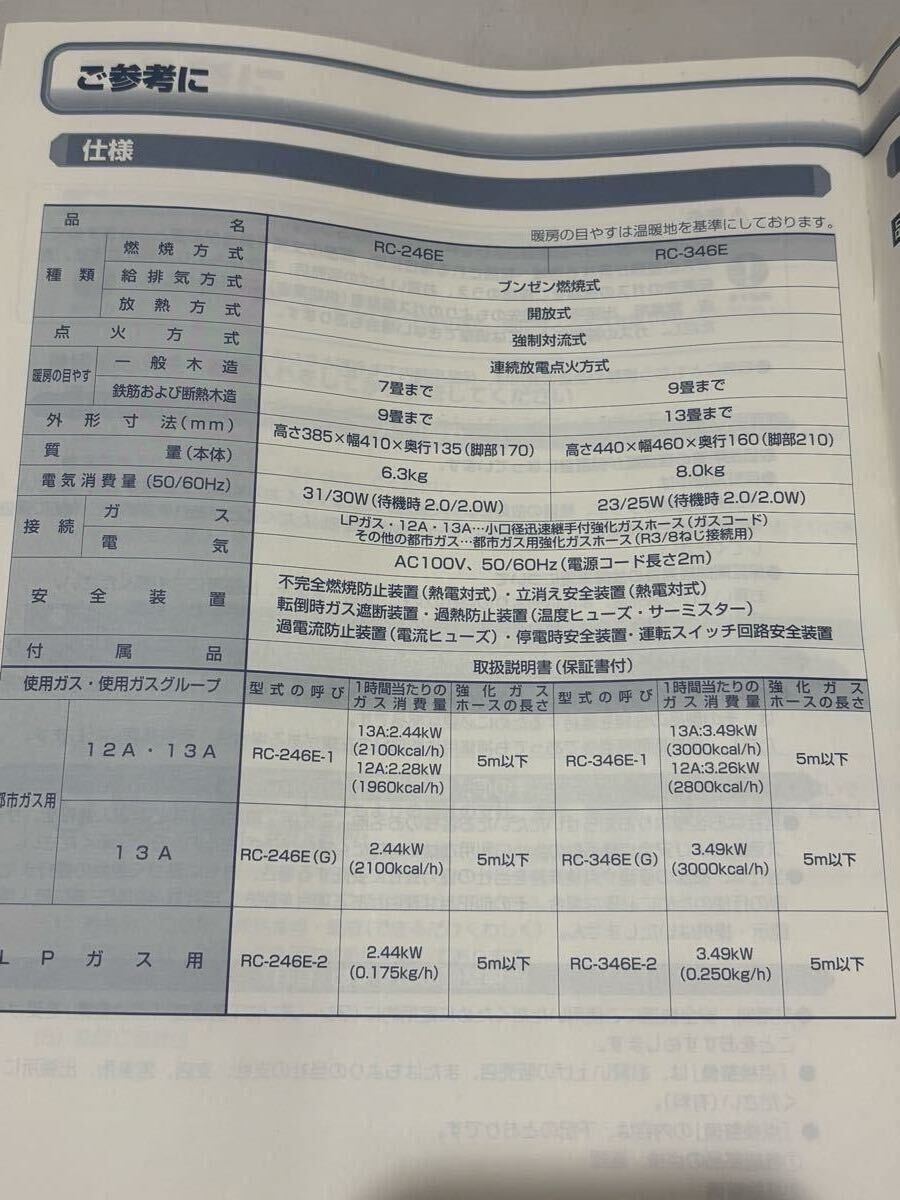 ご参考に
仕様
暖房の目やすは温暖地を基準にしております。
品名 RC-246E RC-346E
種類 燃焼方式 ブンゼン燃焼式
給排気方式 開放式
放熱方式 強制対流式
点火方式 連続放電点火方式
暖房の目やす 一般木造 7畳まで 9畳まで
鉄筋および断熱木造 9畳まで 13畳まで
外形寸法(mm) 高さ385×幅410×奥行135(脚部170) 高さ440×幅460×奥行160(脚部210)
質量(本体) 6.3kg 8.0kg
電気消費量(50/60Hz) 31/30W(待機時2.0/2.0W) 23/25W(待機時2.0/2.0W)
接続 ガス LPガス・12A・13A…小口径迅速継手付強化ガスホース(ガスコード)
その他の都市ガス…都市ガス用強化ガスホース(R3/8ねじ接続用)
電気 AC100V、50/60Hz(電源コード長さ2m)
安全装置 不完全燃焼防止装置(熱電対式)・立消え安全装置(熱電対式)
転倒時ガス遮断装置・過熱防止装置(温度ヒューズ・サーミスター)
過電流防止装置(電流ヒューズ)・停電時安全装置・運転スイッチ回路安全装置
付属品 取扱説明書(保証書付)
使用ガス・使用ガスグループ 型式の呼び 1時間当たりのガス消費量 強化ガスホースの長さ 型式の呼び 1時間当たりのガス消費量 強化ガスホースの長さ
都市ガス用 12A・13A RC-246E-1 13A:2.44kW (2100kcal/h) 12A:2.28kW (1960kcal/h) 5m以下 RC-346E-1 13A:3.49kW (3000kcal/h) 12A:3.26kW (2800kcal/h) 5m以下
13A RC-246E(G) 2.44kW (2100kcal/h) 5m以下 RC-346E(G) 3.49kW (3000kcal/h) 5m以下
LPガス用 RC-246E-2 2.44kW (0.175kg/h) 5m以下 RC-346E-2 3.49kW (0.250kg/h) 5m以下